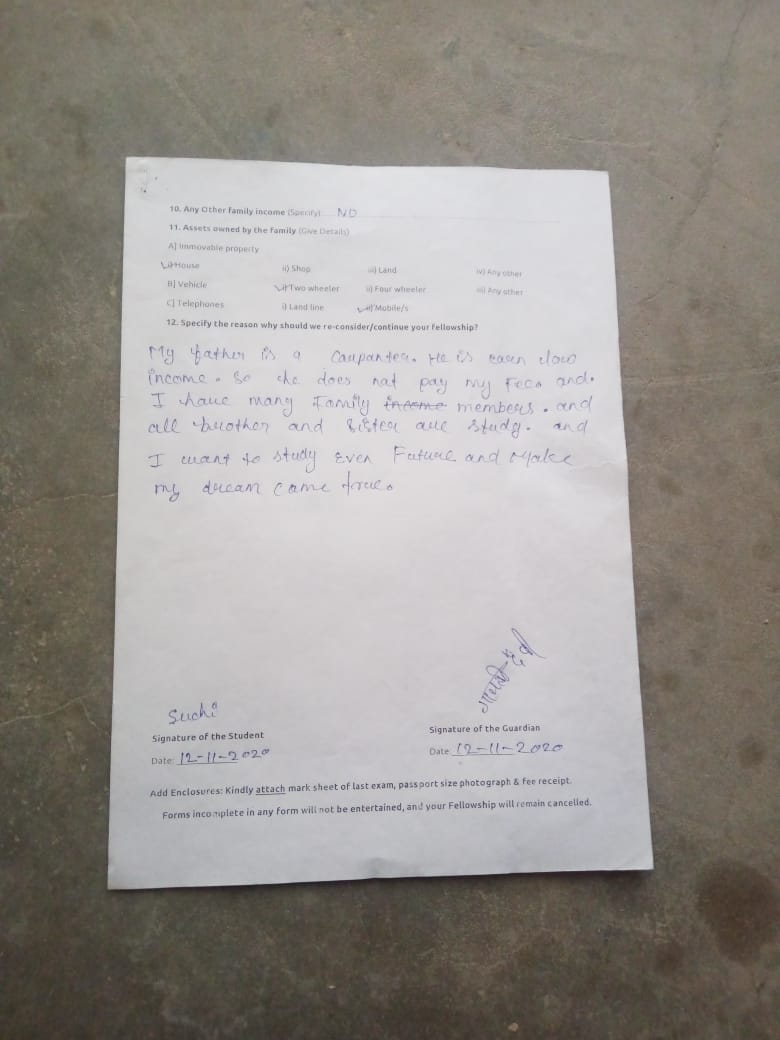 10. Any Other family income (Specify) NO
11. Assets owned by the family (Give Details)
A] Immovable property
i) House ii) Shop iii) Land iv) Any other
B] Vehicle i) Two wheeler ii) Four wheeler iii) Any other
C] Telephones i) Land line ii) Mobile/s
12. Specify the reason why should we re-consider/continue your fellowship?
My father is a Caupanter. He is earn low
income. So she does not pay my Fees and.
I have many Family income members. and
all brother and Sister are study. and
I want to study Even Future and Make
my dream came true.
Suchi
Signature of the Student Signature of the Guardian
Date: 12-11-2020 Date: 12-11-2020
Add Enclosures: Kindly attach mark sheet of last exam, passport size photograph & fee receipt.
Forms incomplete in any form will not be entertained, and your Fellowship will remain cancelled.